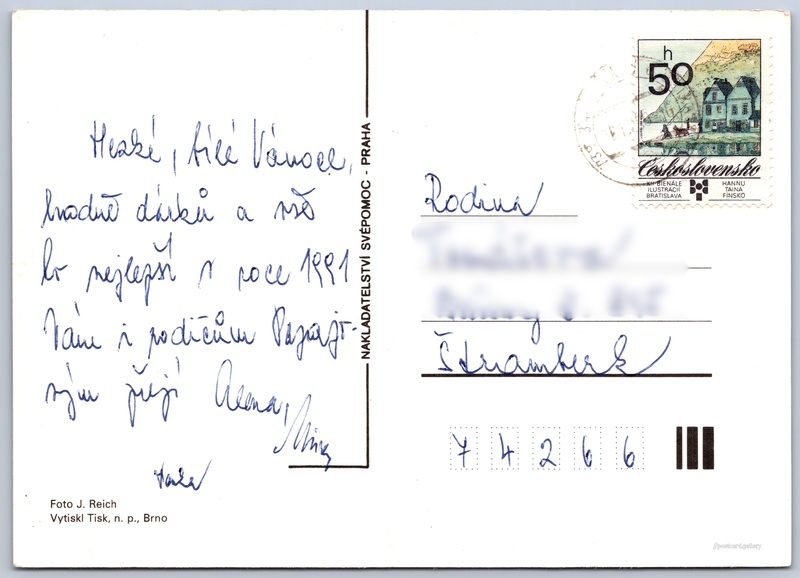 Hezké, bílé Vánoce,
hodně dárků a vše
to nejlepší v roce 1991
Vám i rodičům
přejí Alena,
NAKLADATELSTVÍ SVÉPOMOC - PRAHA
Foto J. Reich
Vytiskl Tisk, n. p., Brno
h
50
Československo
XII BIENÁLE
ILUSTRÁCIÍ
BRATISLAVA
HANNU
TAINA
FÍNSKO
Rodina
Štramberk
7 4 2 6 6
postcard.gallery